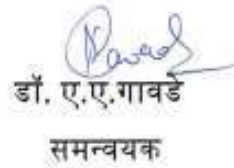 डॉ. ए.ए.गावडे
समन्वयक